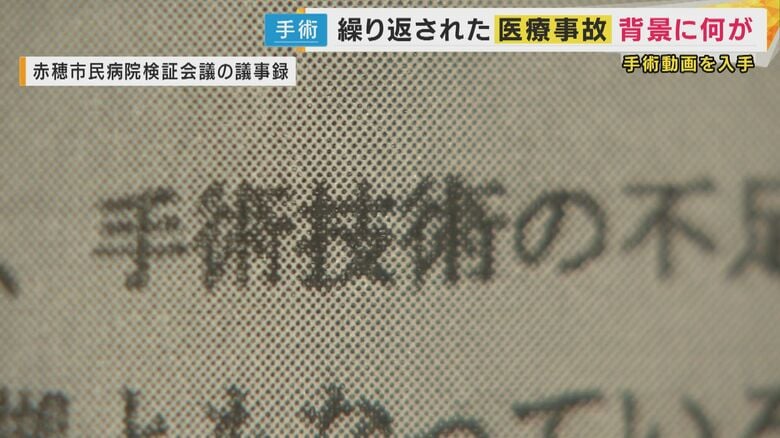 手術 繰り返された医療事故 背景に何が
手術動画を入手
赤穂市民病院検証会議の議事録
、手術技術の不足
となっている